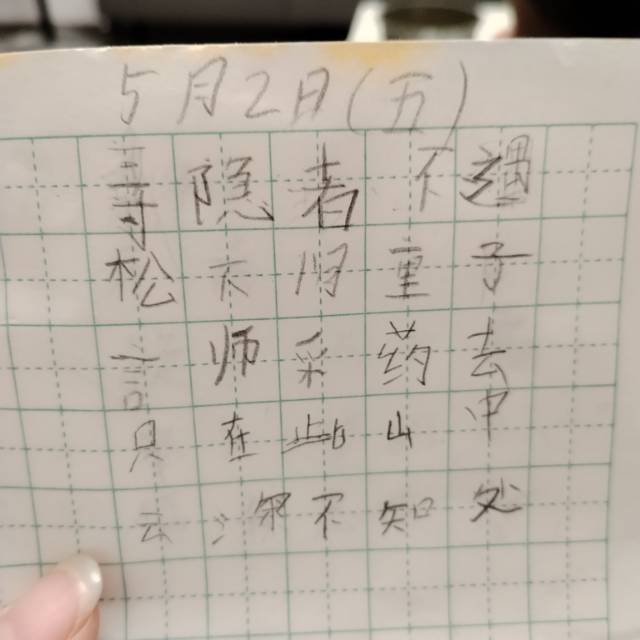 5月2日(五)
寻隐者不遇
松下问童子
言师采药去
只在此山中
云深不知处